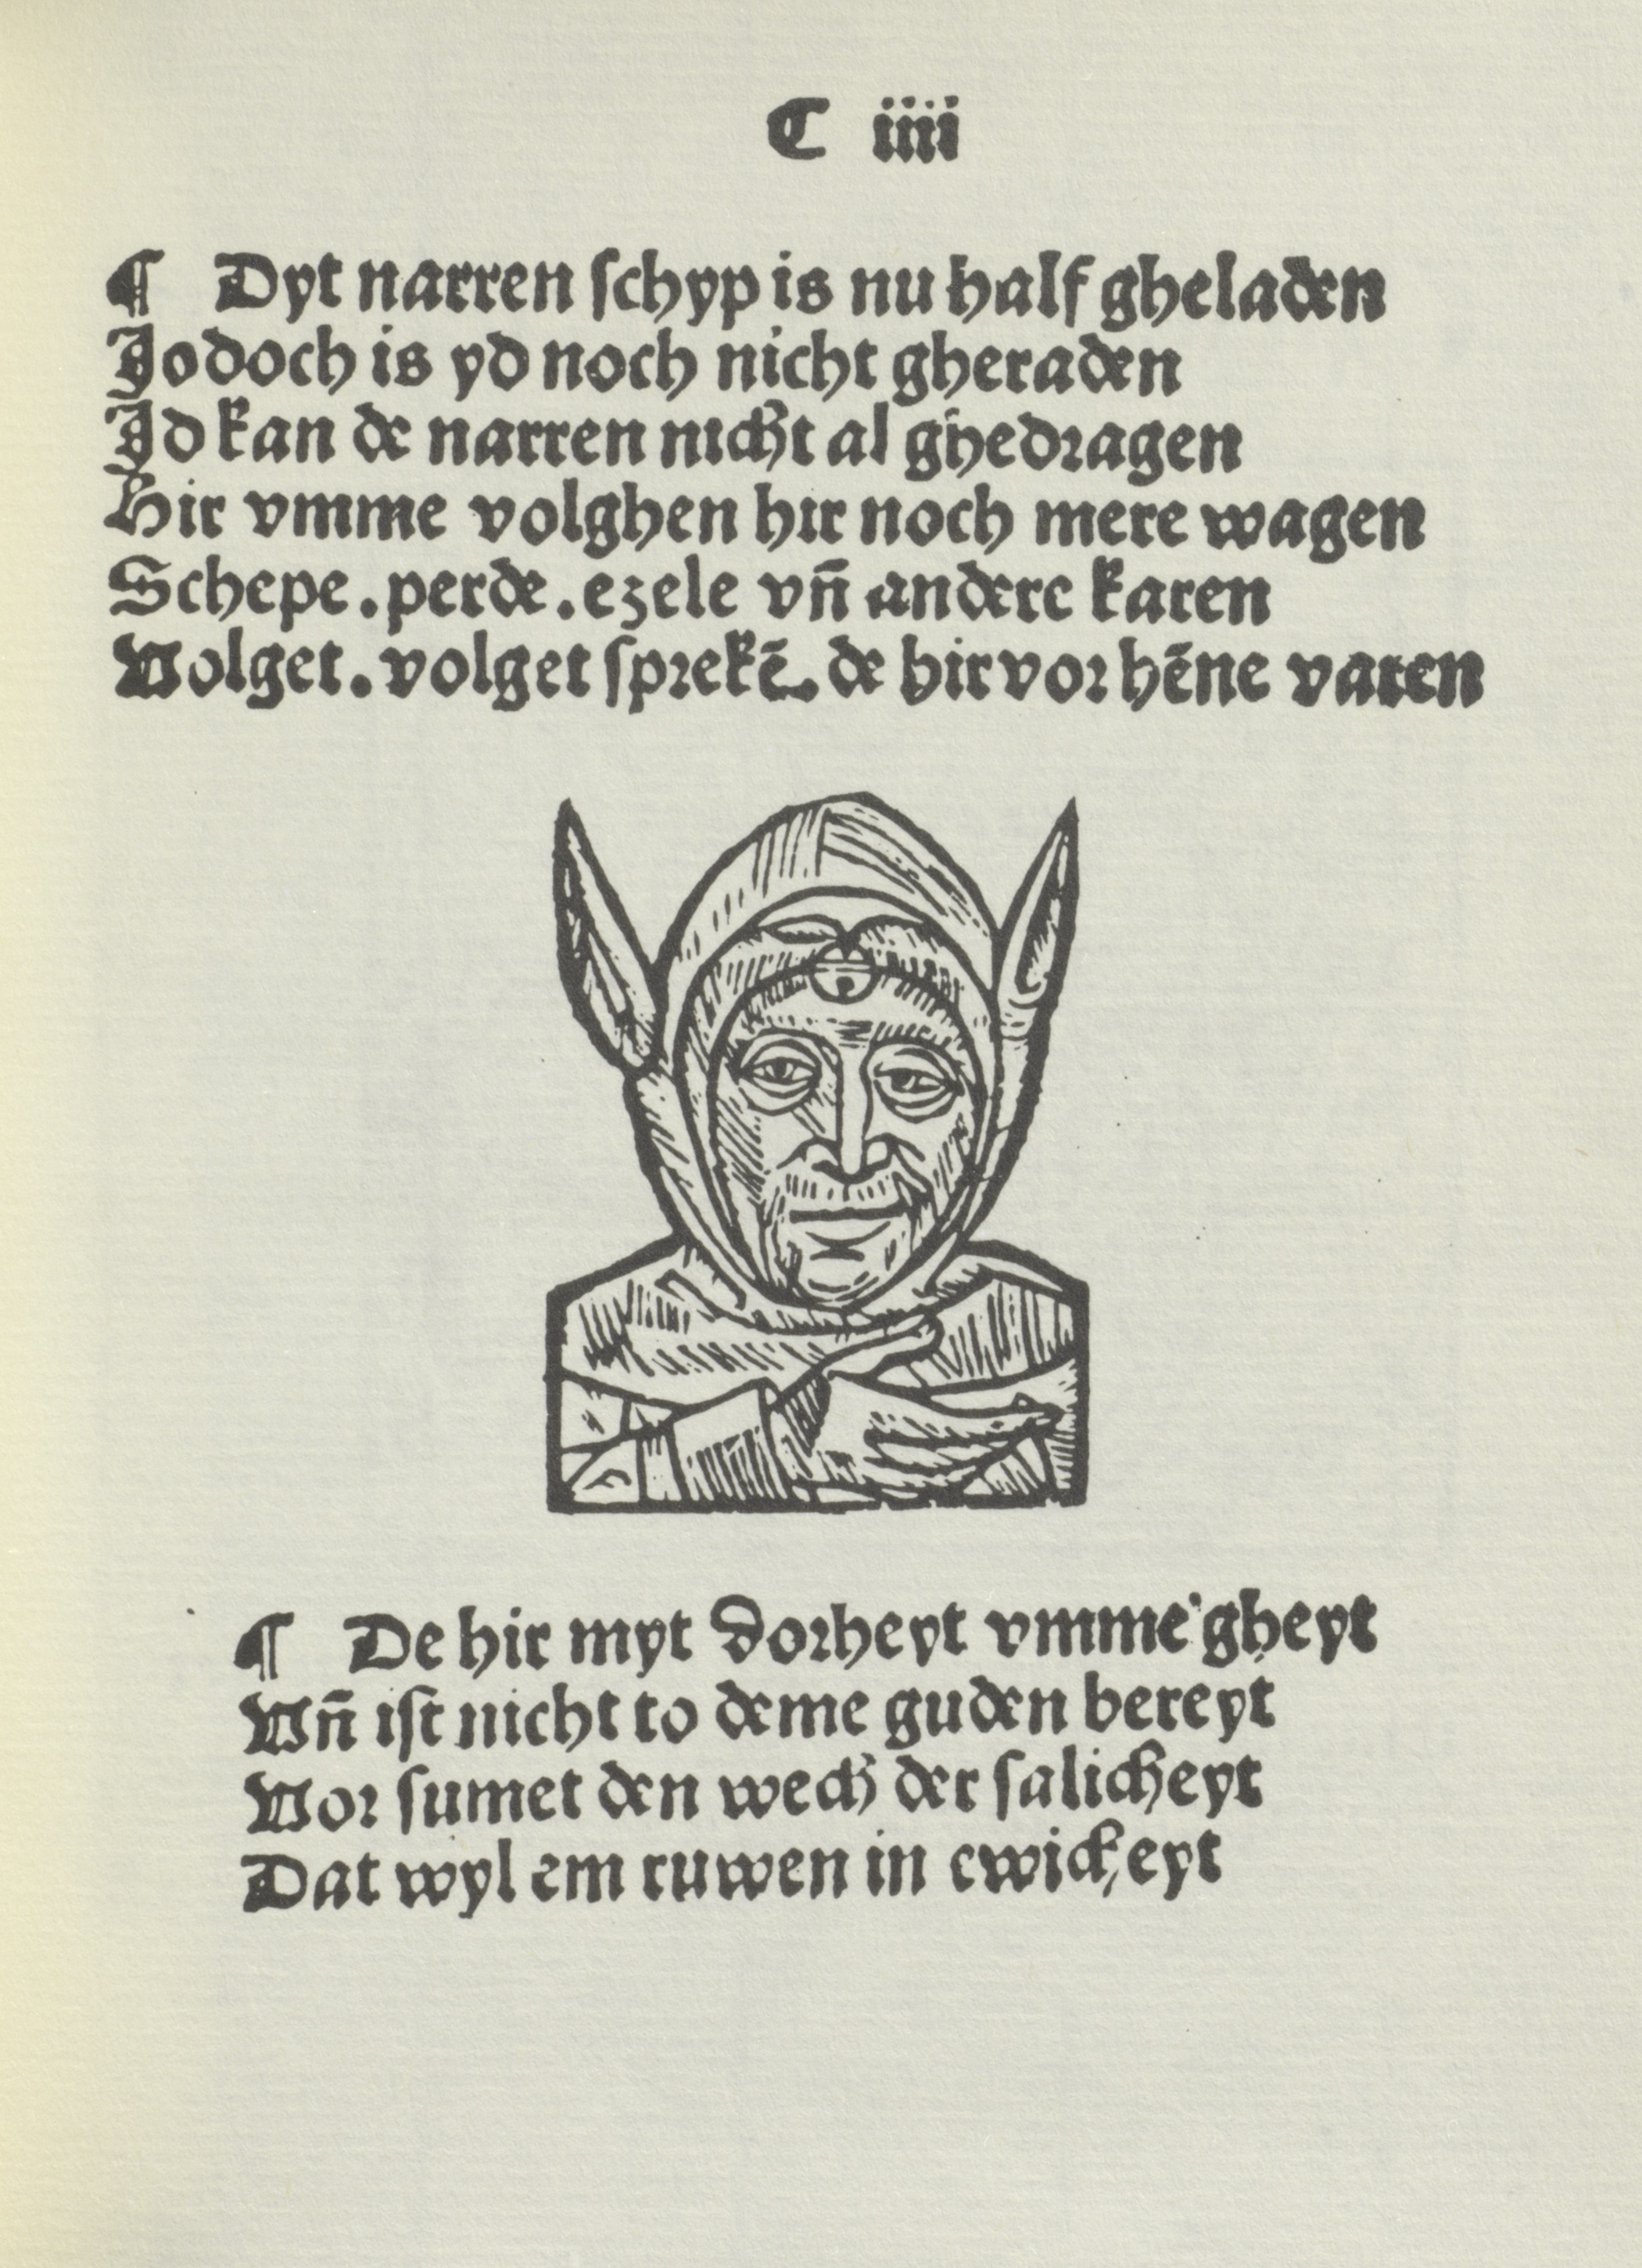 C iiii
¶ Dyt narren ſchyp is nu half gheladen
Jodoch is yd noch nicht gheraden
Jd kan de narren nicht al ghedragen
Hir vmme volghen hir noch mere wagen
Schepe. perde. ezele vn̄ andere karen
Volget. volget ſprekē. de hir vor hēne varen
¶ De hir myt dorheyt vmme gheyt
Vn̄ iſt nicht to deme guden bereyt
Vor ſumet den wech der ſalicheyt
Dat wyl em ruwen in ewickeyt